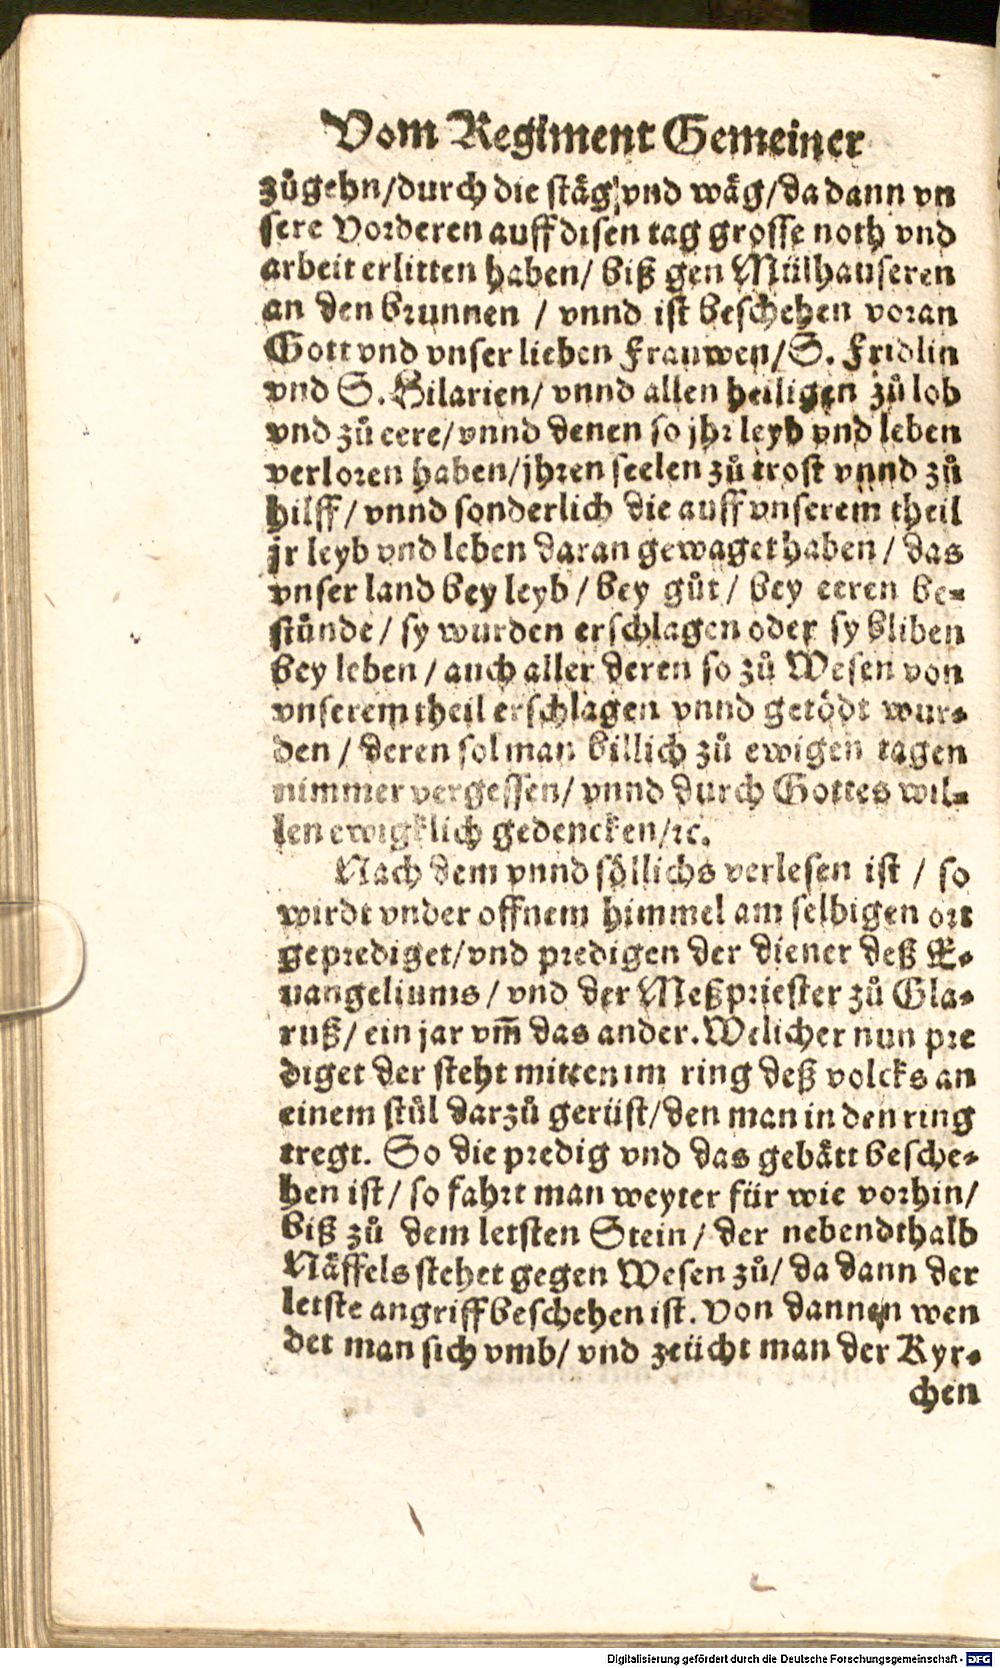 Vom Regiment Gemeiner
zůgehn/durch die stäg/vnd wäg/da dann vn
sere Vorderen auff disen tag grosse noth vnd
arbeit erlitten haben/ biß gen Mülhauseren
an den brunnen / vnnd ist beschehen voran
Gott vnd vnser lieben Frauwen/S. Fridlin
vnd S. Hilarien/ vnnd allen heiligen zů lob
vnd zů eere/vnnd denen so jhr leyb vnd leben
verloren haben/jhren seelen zů trost vnnd zů
hilff/ vnnd sonderlich die auff vnserem theil
jr leyb vnd leben daran gewaget haben / das
vnser land bey leyb / bey gůt / bey eeren be-
stůnde / sy wurden erschlagen oder sy bliben
bey leben / auch aller deren so zů Wesen von
vnserem theil erschlagen vnnd getödt wur-
den / deren sol man billich zů ewigen tagen
nimmer vergessen/ vnnd durch Gottes wil-
len ewigklich gedencken/ꝛc.
Nach dem vnnd söllichs verlesen ist / so
wirdt vnder offnem himmel am selbigen ort
geprediget/vnd predigen der diener deß E-
uangeliums / vnd der Meßpriester zů Gla-
ruß/ ein jar vm̃ das ander. Welicher nun pre
diget der steht mitten im ring deß volcks an
einem stůl darzů gerüst/den man in den ring
tregt. So die predig vnd das gebätt besche-
hen ist/ so fahrt man weyter für wie vorhin/
biß zů dem letsten Stein / der nebendthalb
Näffels stehet gegen Wesen zů/ da dann der
letste angriff beschehen ist. Von dannen wen
det man sich vmb/ vnd zeücht man der Kyr-
chen
Digitalisierung gefördert durch die Deutsche Forschungsgemeinschaft - DFG